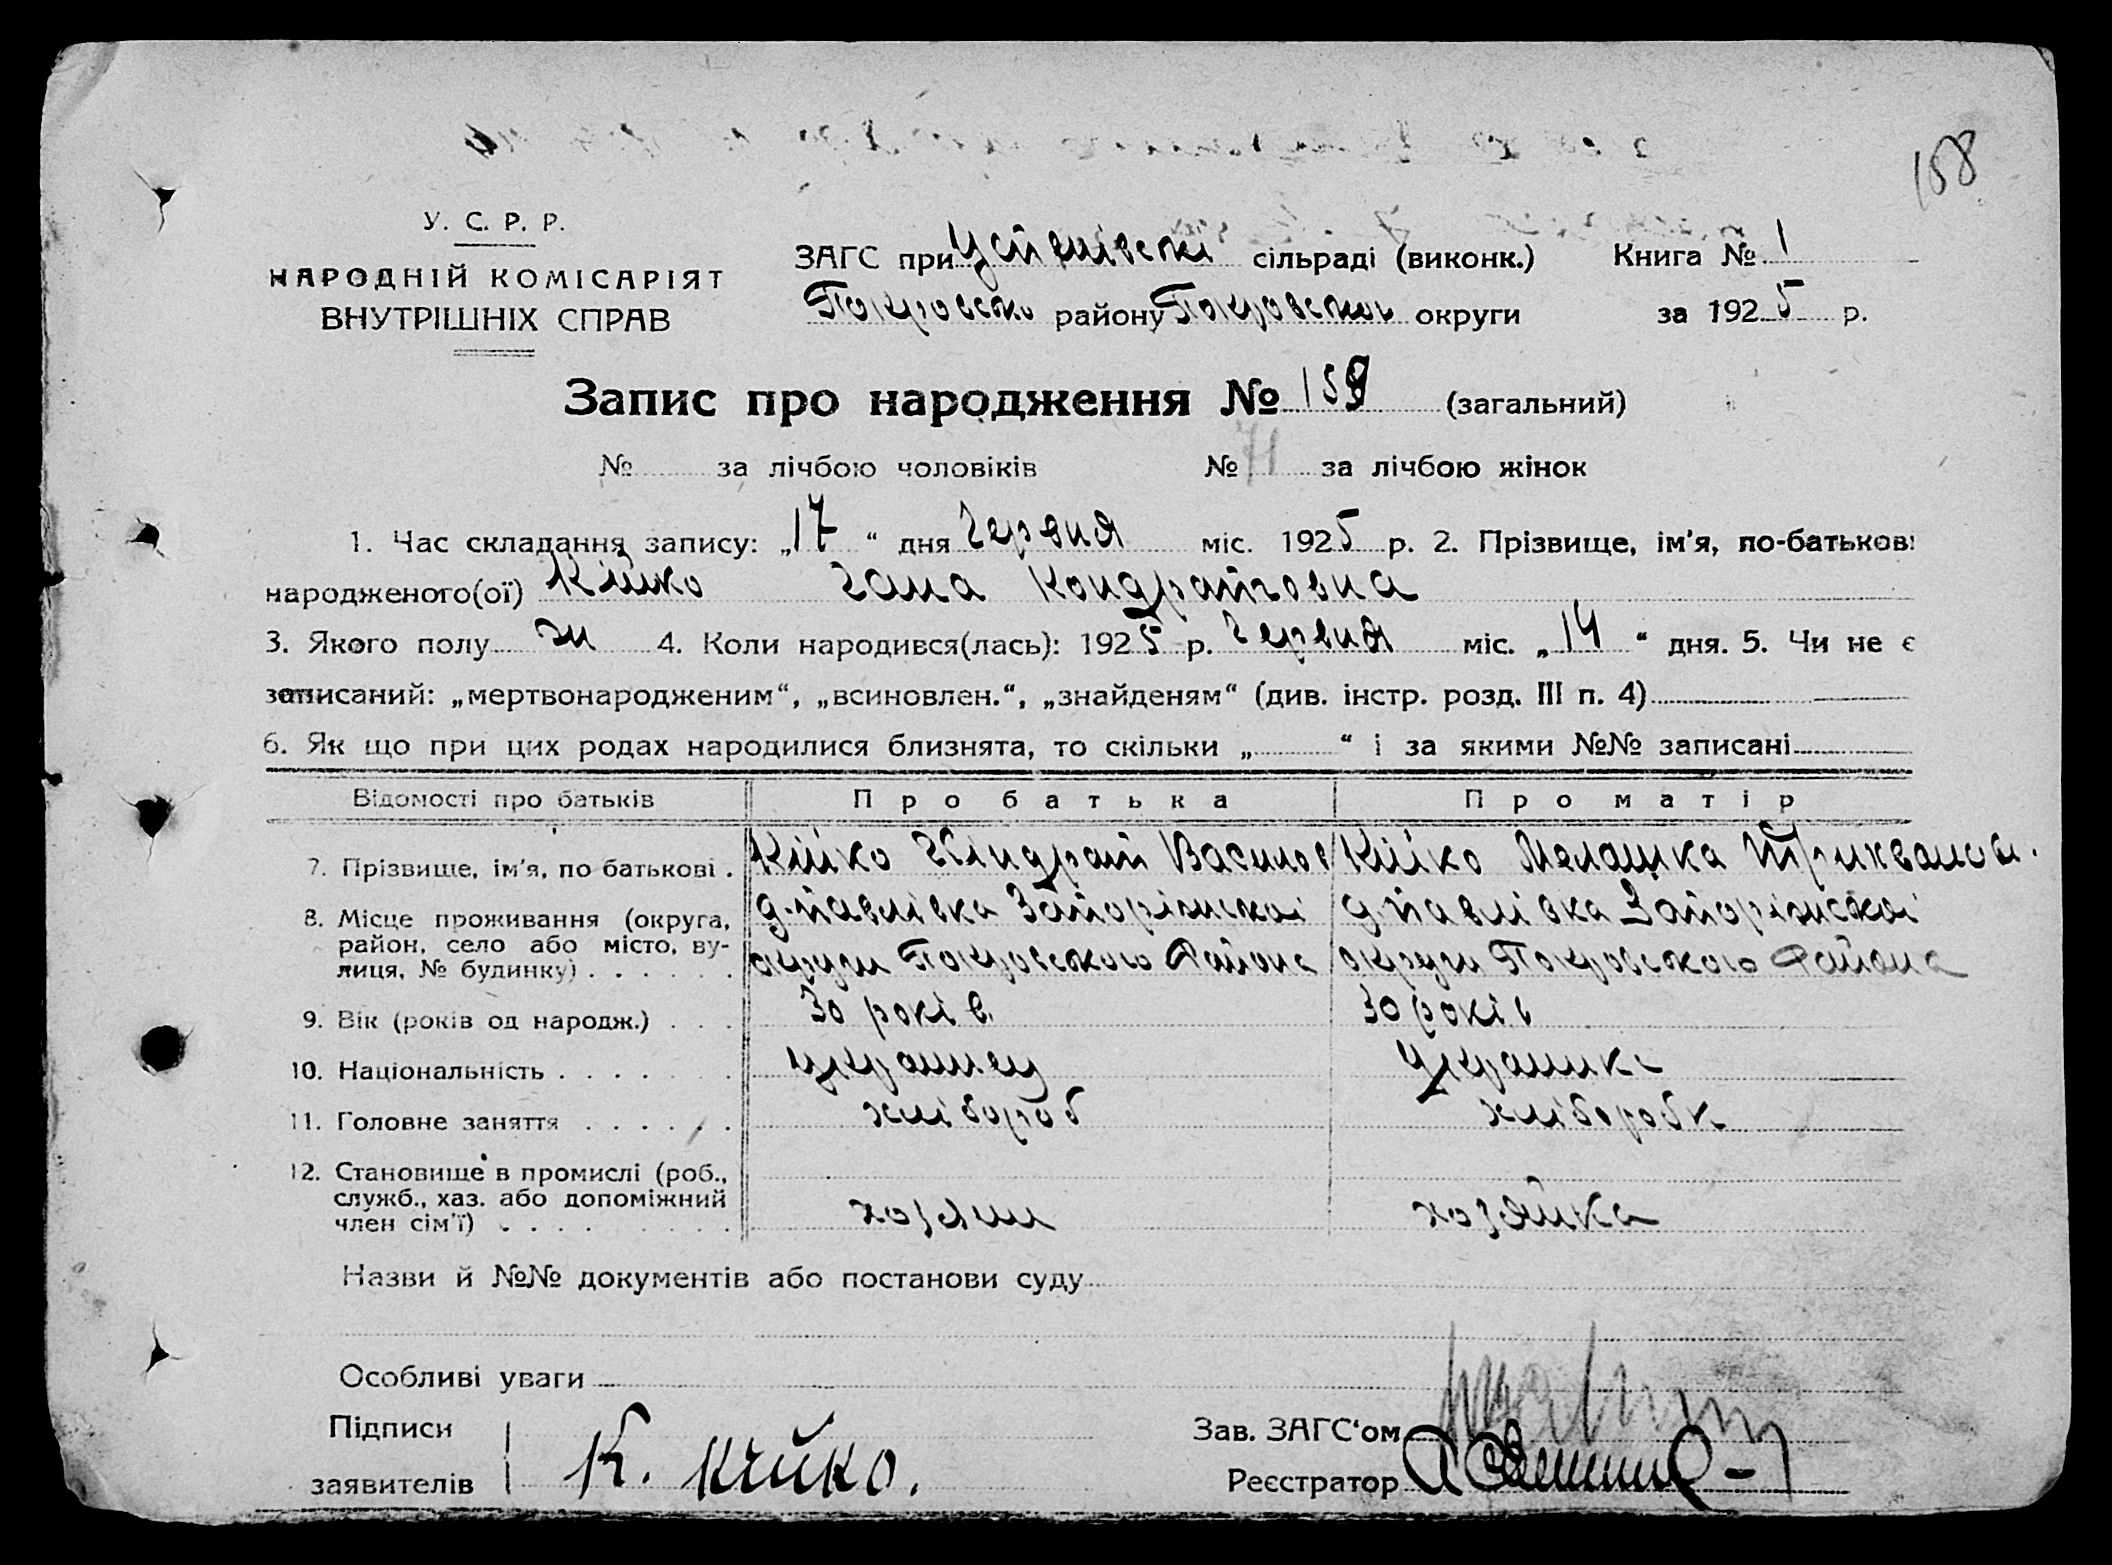 158
У. С. Р. Р.
НАРОДНІЙ КОМІСАРІЯТ
ВНУТРІШНІХ СПРАВ
ЗАГС при сільраді (виконк.) Книга № 1
Покровсько району Покровської округи за 1925 р.
Запис про народження № 159 (загальний)
№ за лічбою чоловіків № 71 за лічбою жінок
1. Час складання запису: „17“ дня Червня міс. 1925 р. 2. Прізвище, ім'я, по-батькові
народженого(ої) Кійко Гана Кондратговна
3. Якого полу жи 4. Коли народився(лась): 1925 р. Червня міс. „14“ дня. 5. Чи не є
записаний: „мертвонародженим“, „всиновлен.“, „знайденям“ (див. інстр. розд. III п. 4)
6. Як що при цих родах народилися близнята, то скільки „ “ і за якими №№ записані
Відомості про батьків Про батька Про матір
7. Прізвище, ім'я, по батькові . Кійко Кіндрат Васильов Кійко Мелашка
8. Місце проживання (округа, район, село або місто, вулиця, № будинку) . . . . . .
д. Павлівка Запоріжської д. Павлівка Запоріжської
округи Покровського Района округи Покровського Района
9. Вік (років од народж.) . . . 30 років. 30 років
10. Національність . . . . . . украинец украинка
11. Головне заняття . . . . . . хлібороб хліборобк
12. Становище в промислі (роб., служб., хаз. або допоміжний член сім'ї) . . . . хозяин хозяйка
Назви й №№ документів або постанови суду
Особливі уваги
Підписи
заявителів К. Кійко.
Зав. ЗАГС'ом
Реєстратор